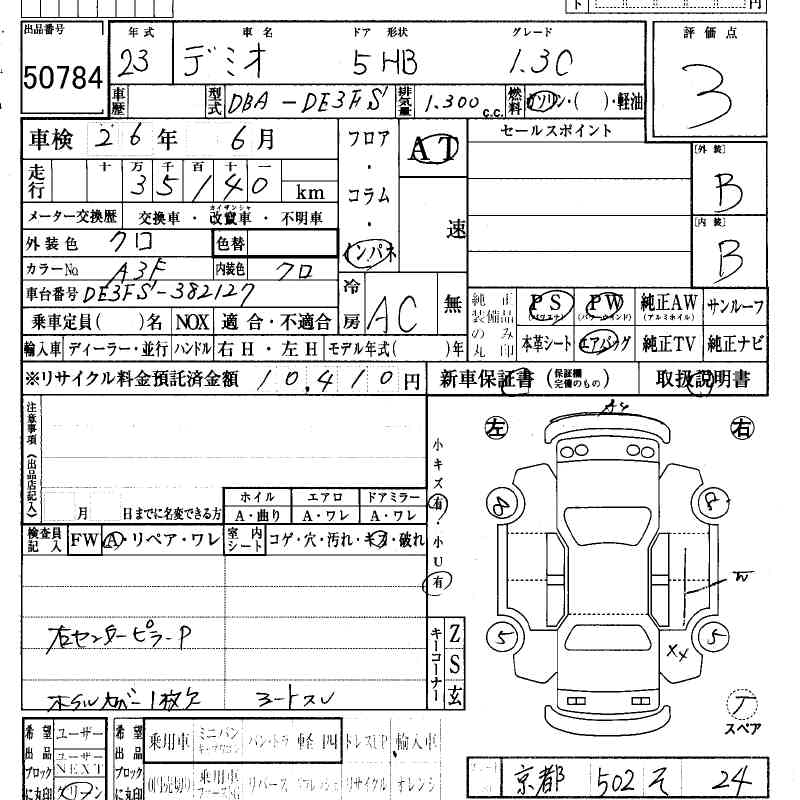 出品番号 年式 車名 ドア 形状 グレード 評価点
50784 23 デミオ 5HB 1.3C 3
車歴 型式 DBA-DE3FS 排気量 1.300 c.c. 燃料 ガソリン・( )・軽油
車検 26年 6月 フロア・コラム・インパネ AT セールスポイント
[外装] B
走行 十 万 千 百 十 一
35140 km
メーター交換歴 交換車・改竄車・不明車 速
カイザンシャ
[内装] B
外装色 クロ 色替
カラーNo. A3F 内装色 クロ
車台番号 DE3FS-382127 冷房 AC 無
純正装備品のみ丸印 PS (パワステ) PW (パワーウインド) 純正AW (アルミホイル) サンルーフ
乗車定員( )名 NOX 適合・不適合
本革シート エアバッグ 純正TV 純正ナビ
輸入車 ディーラー・並行 ハンドル 右H・左H モデル年式( )年
※リサイクル料金預託済金額 10,410円 新車保証書 (保証欄完備のもの) 取扱説明書
注意事項(出品店記入)
左 右
小キズ有・小U有
月 日までに名変できる方
ホイル エアロ ドアミラー
A・曲り A・ワレ A・ワレ
検査員記入 FW A・リペア・ワレ 室内シート コゲ・穴・汚れ・キズ・破れ
8 8
右センターピラーP
5 5
XX
キーコーナー Z S 玄
ホイルカバー1枚欠
T
スペア
希望出品ブロックに丸印 ユーザー
ユーザーNEXT
希望出品ブロックに丸印 乗用車 ミニバン バン・トラ 軽四 ドレスUP 輸入車
売切り 乗用車 リバース リフレッシュ リサイクル オレンジ
京都 502 そ 24